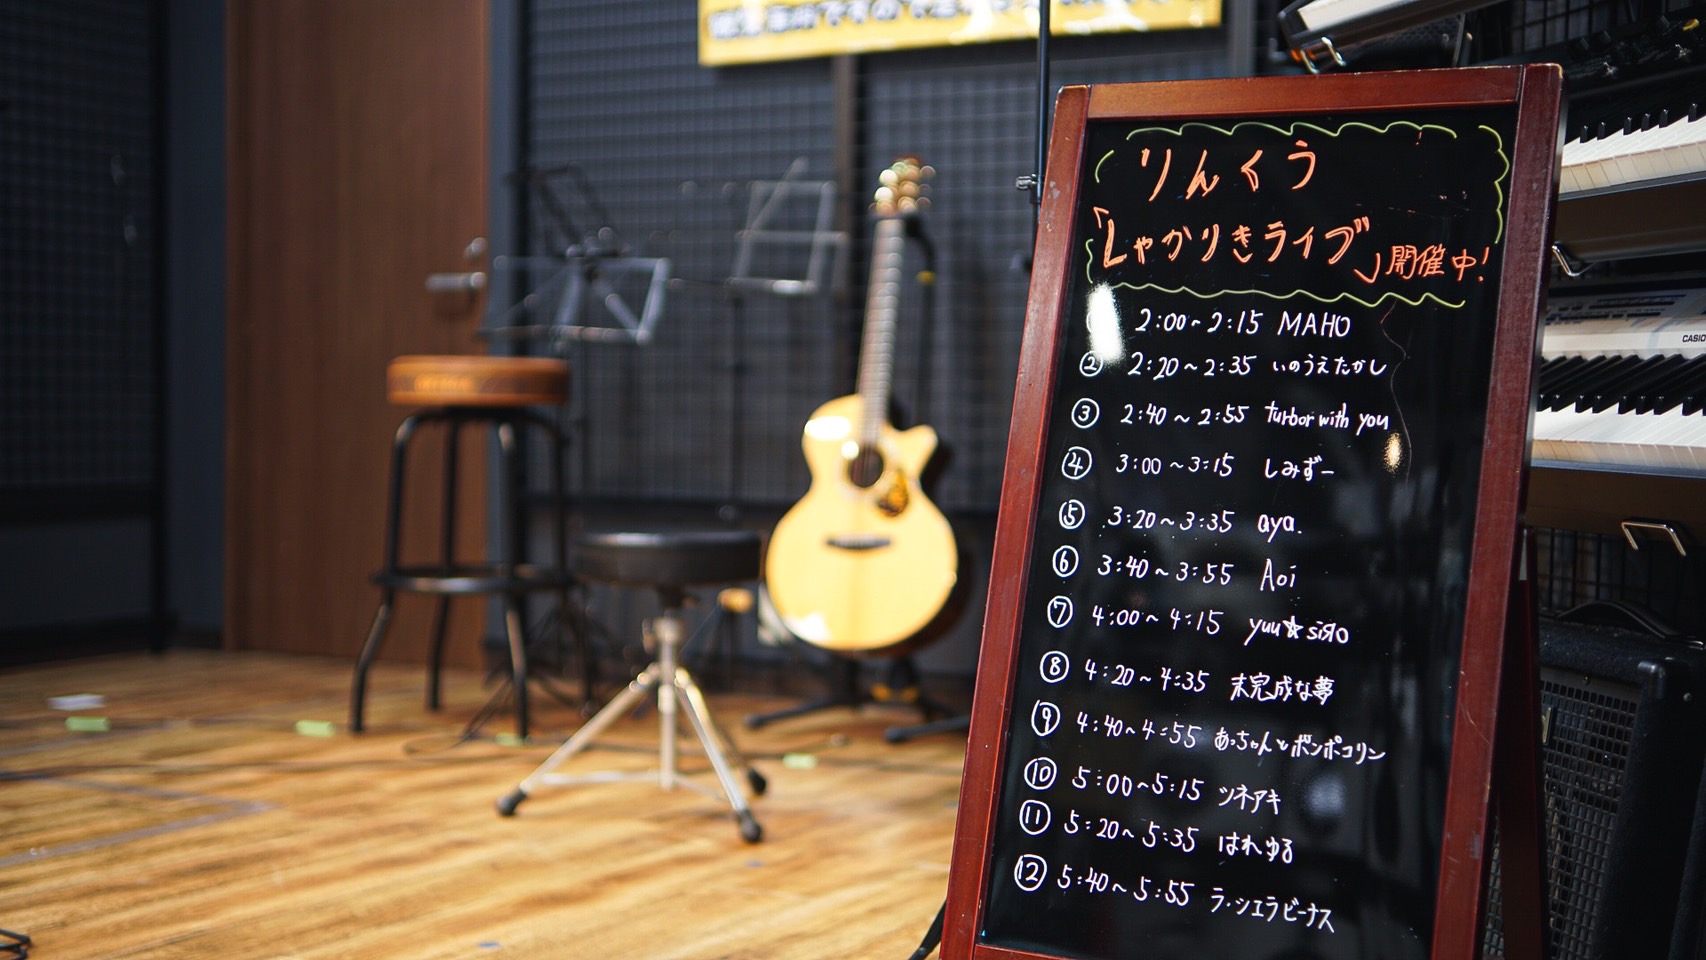 りんくう
「しゃかりきライブ」開催中!
2:00~2:15 MAHO
② 2:20~2:35 いのうえたかし
③ 2:40~2:55 turbor with you
④ 3:00~3:15 しみずー
⑤ 3:20~3:35 aya.
⑥ 3:40~3:55 Aoi
⑦ 4:00~4:15 yuu☆siЯo
⑧ 4:20~4:35 未完成な夢
⑨ 4:40~4:55 あっちゃんとボンポコリン
⑩ 5:00~5:15 ツネアキ
⑪ 5:20~5:35 はれゆる
⑫ 5:40~5:55 ラ・シエラビーナス
CASIO